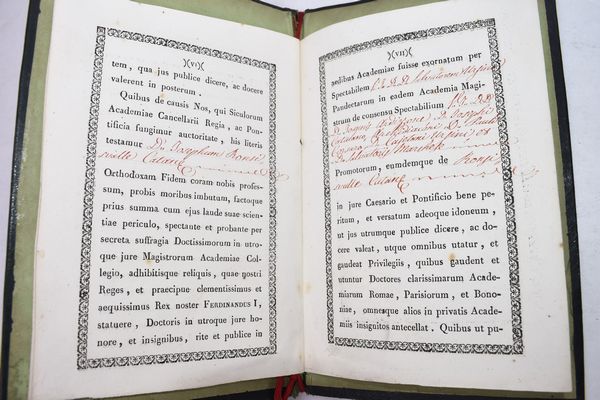 )(VI)(
tem, qua jus publice dicere, ac docere
valerent in posterum.
Quibus de causis Nos, qui Siculorum
Academiae Cancellarii Regia, ac Pon-
tificia fungimur auctoritate, his literis
testamur D. Josephum
Orthodoxam Fidem coram nobis profes-
sum, probis moribus imbutum, factoque
prius summa cum ejus laude suae scien-
tiae periculo, spectante et probante per
secreta suffragia Doctissimorum in utro-
que jure Magistrorum Academiae Col-
legio, adhibitisque reliquis, quae nostri
Reges, et praecipue clementissimus et
aequissimus Rex noster FERDINANDUS I,
statuere, Doctoris in utroque jure ho-
nore, et insignibus, rite et publice in
)(VII)(
aedibus Academiae fuisse exornatum per
Spectabilem
Pandectarum in eadem Academia Magi-
strum de consensu Spectabilium
Promotorum, eumdemque de
in jure Caesario et Pontificio bene pe-
ritum, et versatum adeoque idoneum,
ut jus utrumque publice dicere, ac do-
cere valeat, utque omnibus utatur, et
gaudeat Privilegiis, quibus gaudent et
utuntur Doctores clarissimarum Acade-
miarum Romae, Parisiorum, et Bono-
niae, omnesque alios in privatis Acade-
miis insignitos antecellat. Quibus ut pu-